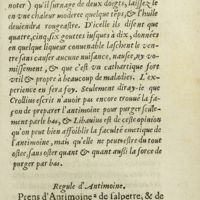 noter) qu'il surnage de deux doigts, laissez le
en vne chaleur moderee quelque tēps, & l'huile
deuiendra rougeastre. D'icelle ils disent que
quatre, cinq, six gouttes iusques à dix, donnees
en quelque liqueur conuenable laschent le ven-
tre sans causer aucune nuisance, nausee, ny vo-
missement, & que c'est vn cathartique fort
vtil & propre à beaucoup de maladies. L'ex-
perience en fera foy. Seulement diray-ie que
Crollius escrit n'auoir pas encore trouué la fa-
çon de preparer l'antimoine pour purger seule-
ment par bas, & Libauius est de ceste opinion
qu'on peut bien affoiblir la faculté emetique de
l'antimoine, mais qu'elle ne peut estre du tout
ostee sans oster quant & quant aussi la force de
purger par bas.
Regule d'Antimoine.
Prens d'Antimoine de salpetre, & de